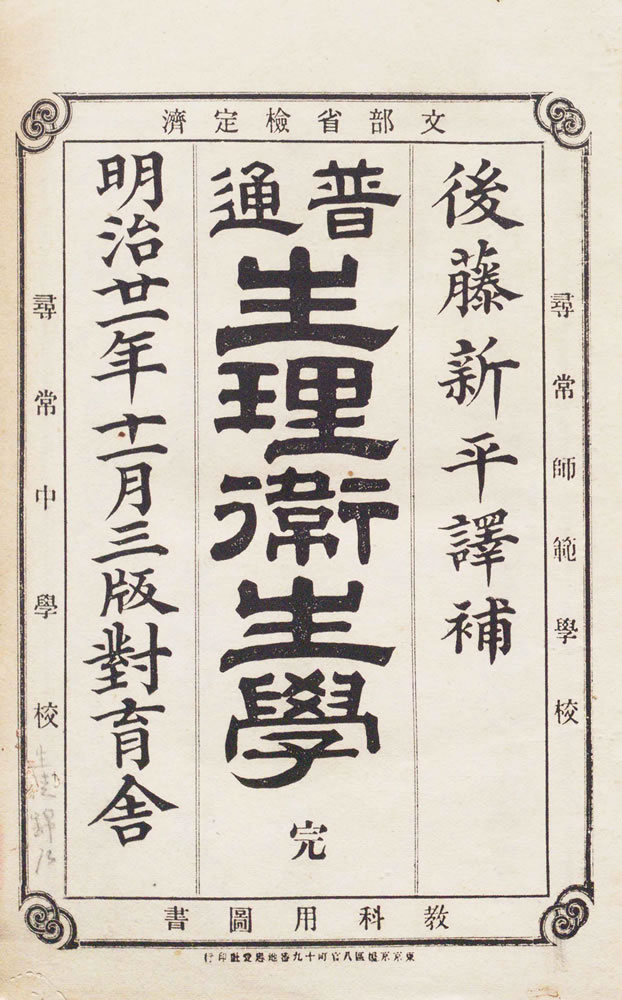 文部省檢定濟
尋常師範學校
後藤新平譯補
普通
生理衛生學 完
明治廿一年十一月三版對育舍
尋常中學校
教科用圖書
東京京橋區八官町十九番地忠愛社印行